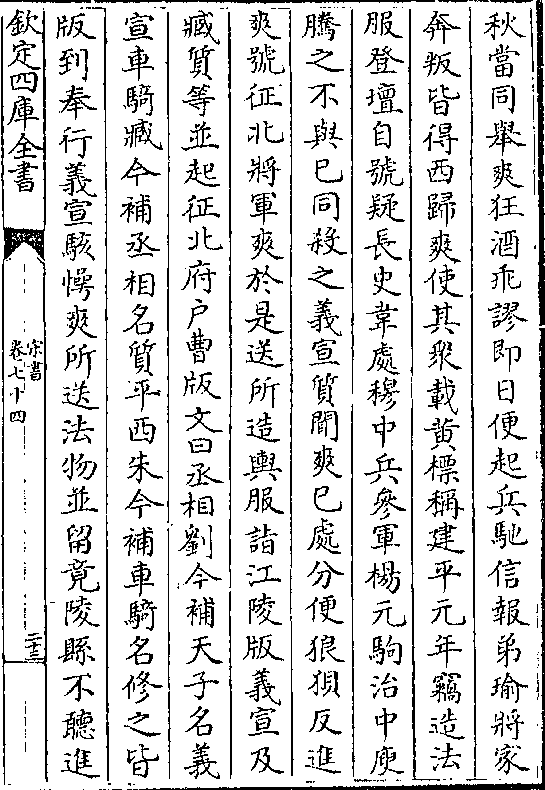 秋當同舉爽狂酒乖謬即日便起兵馳信報弟瑜將家
奔叛皆得西歸爽使其衆載黄標稱建平元年竊造法
服登壇自號疑長史韋處穆中兵參軍楊元駒治中庾
騰之不與已同殺之義宣質聞爽已處分便狼狽反進
爽號征北將軍爽於是送所造輿服詣江陵版義宣及
臧質等並起征北府户曹版文曰丞相劉今補天子名義
宣車騎臧今補丞相名質平西朱今補車騎名修之皆
版到奉行義宣駭愕爽所送法物並留竟陵縣不聽進
欽定四庫全書
宋書
卷七十四
二十三